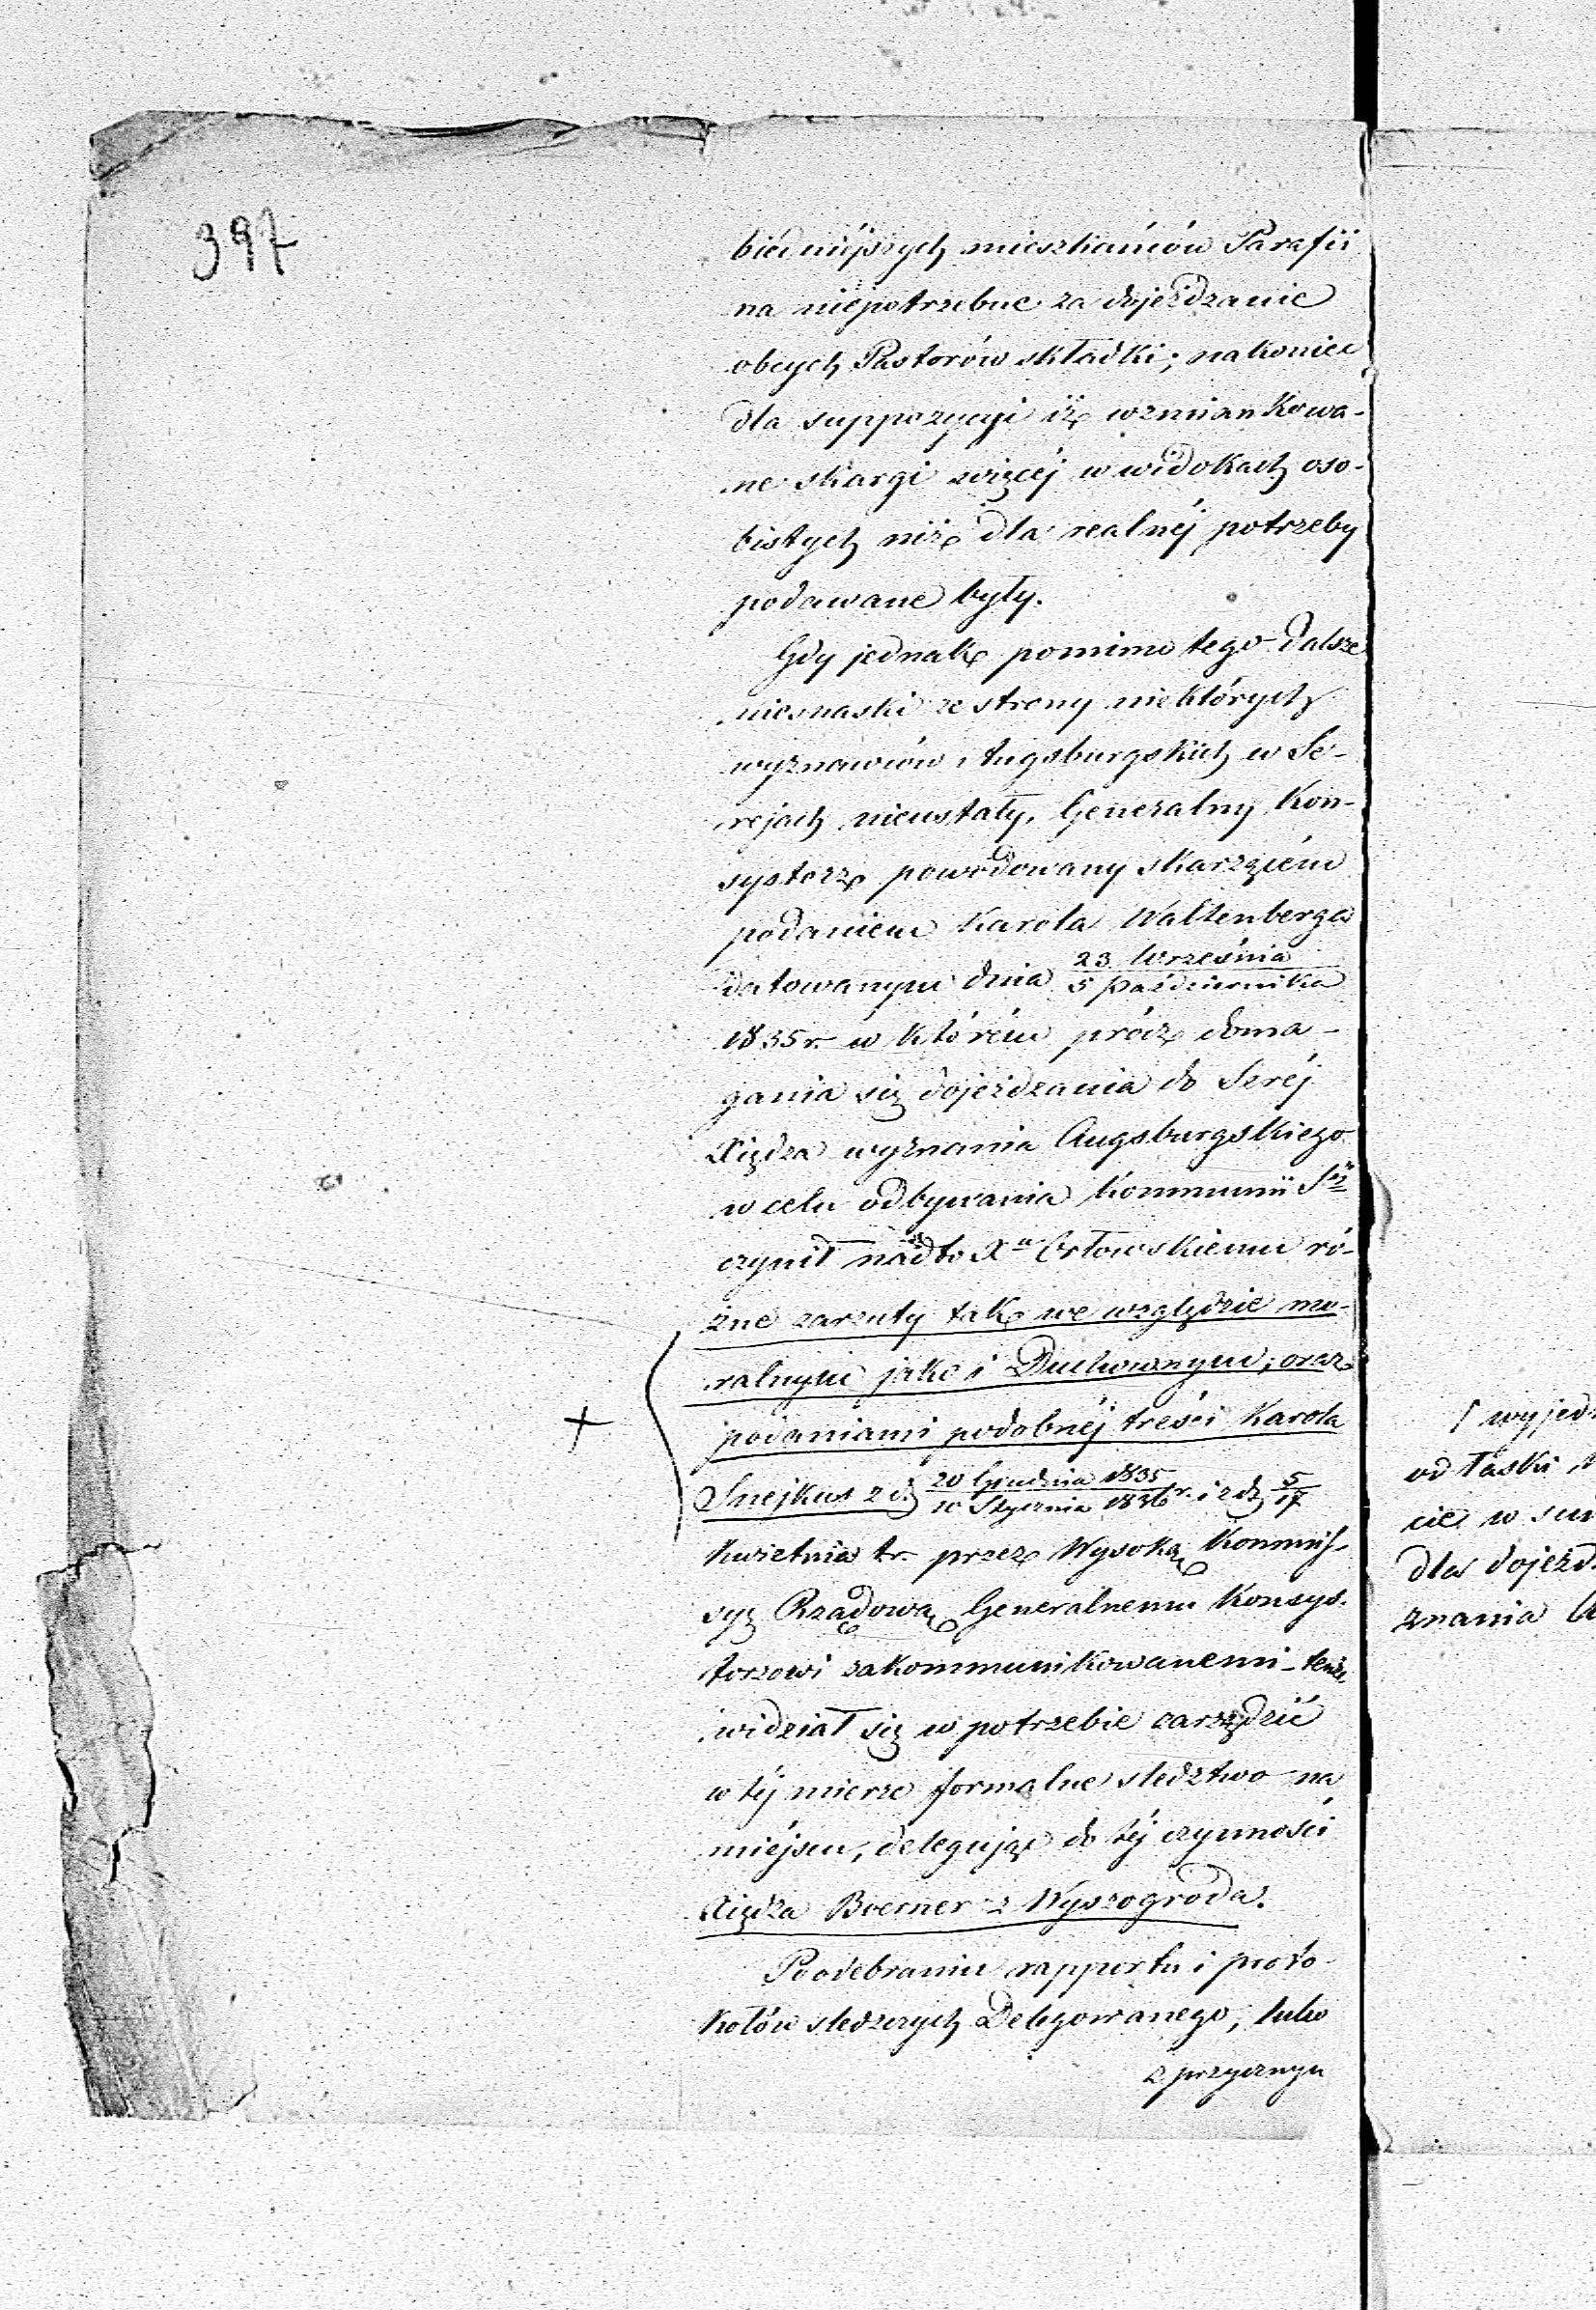 397
biédniéjszych mieszkańców Parafii
na niépotrzebne za dojeżdzanie
obcych Pastorów składki; nakoniec
dla suppozycyi iż wzmiankowa-
ne skargi więcéj w widokach oso-
bistych niż dla realnéj potrzeby
podawane były.
Gdy jednak pomimo tego dalsze
niesnaski ze strony niektórych
wyznawców Augsburgskich w Se-
rejach nieustały, Generalny Kon-
systorz powodowany skarzącém
podaniem Karola Waltenberga
datowanym dnia 23 Września / 5 Października
1835 r. w którém prócz doma-
gania się dojeżdzania doSeréj
Xiędza wyznania Augsburgskiego
w celu odbywania Kommunii Sᵗᵉ́ʲ
czynił nadto Xᵘ Orłowskiemu ró-
żne zarzuty tak we względzie mo-
ralnym jako i Duchownym; oraz
podaniami podobnéj treści Karola
Snejkus z d. 20 Grudnia 1835 / 10 Stycznia 1836 r. i z d. 5/17
Kwietnia tr. przez Wysoką Kommis-
syę Rządową Generalnemu Konsys-
torzowi zakommunikowanemi - tenże
widział się w potrzebie zarządzić
w téj mierze formalne sledztwo na
miéjscu, delegując do téj czynności
Xiędza Boerner z Wyszogroda.
Po odebraniu rapportu i proto-
kołów sledczych Delegowanego, lubo
z przyczyn
+
/ wyjed
od łaski
cie w
dla dojezd
znania